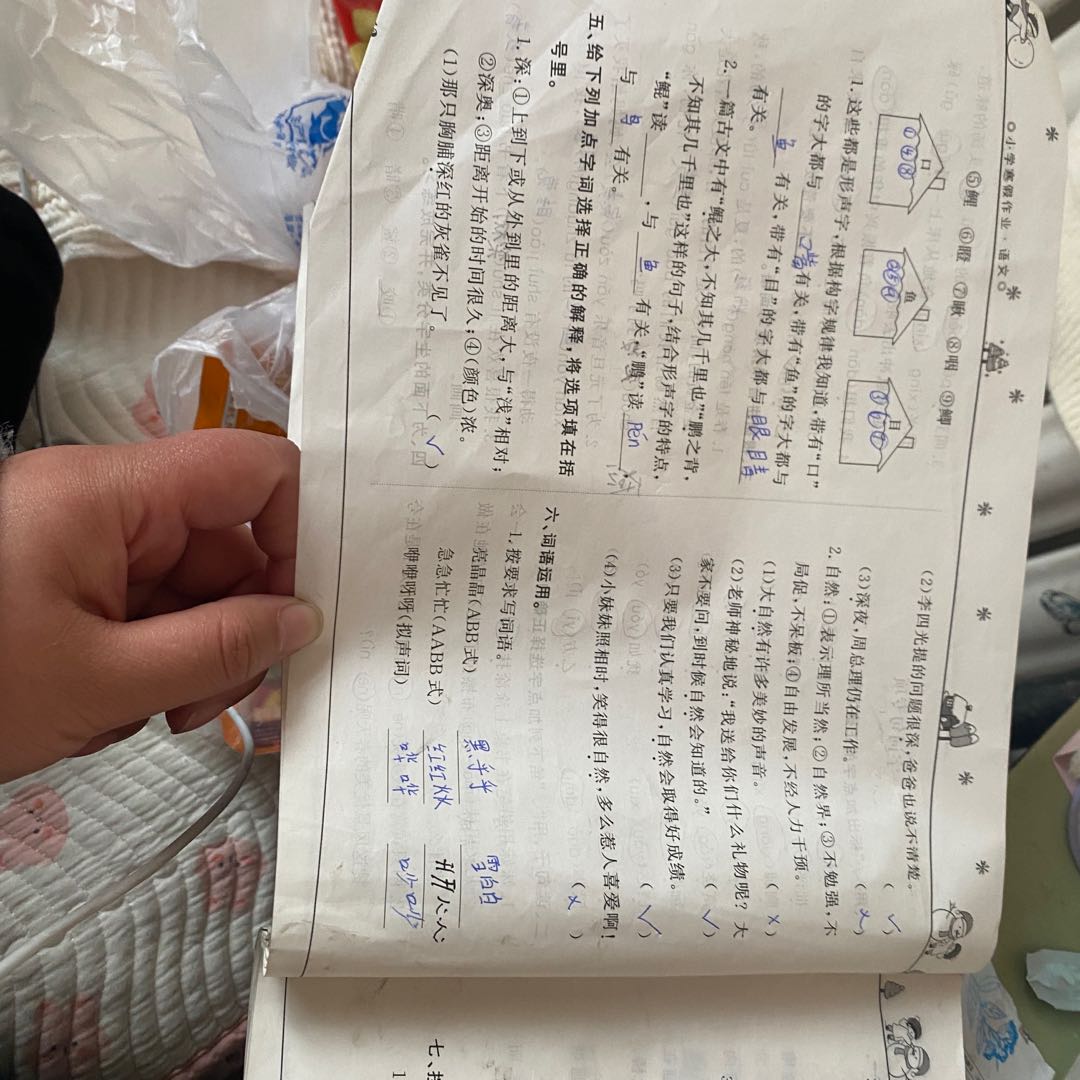 小学寒假作业·语文
⑤鲤 ⑥瞪 ⑦啾 ⑧咽 ⑨鲫
口 鱼 目
1.这些都是形声字,根据构字规律我知道,带有“口”
的字大都与 嘴 有关,带有“鱼”的字大都与
鱼 有关,带有“目”的字大都与 眼睛
有关。
2.一篇古文中有“鲲之大,不知其几千里也”“鹏之背,
不知其几千里也”这样的句子,结合形声字的特点,
“鲲”读 ,与 鱼 有关,“鹏”读 pén ,
与 鸟 有关。
五、给下列加点字词选择正确的解释,将选项填在括
号里。
1.深:①上到下或从外到里的距离大,与“浅”相对;
②深奥;③距离开始的时间很久;④(颜色)浓。
(1)那只胸脯深红的灰雀不见了。 (√)
(2)李四光提的问题很深,爸爸也说不清楚。
(√)
(3)深夜,周总理仍在工作。 (×)
2.自然:①表示理所当然;②自然界;③不勉强,不
局促,不呆板;④自由发展,不经人力干预。
(1)大自然有许多美妙的声音。 (×)
(2)老师神秘地说:“我送给你们什么礼物呢?大
家不要问,到时候自然会知道的。” (√)
(3)只要我们认真学习,自然会取得好成绩。
(√)
(4)小妹妹照相时,笑得很自然,多么惹人喜爱啊!
(×)
六、词语运用。
1.按要求写词语。
亮晶晶(ABB式) 黑乎乎 雪白白
急急忙忙(AABB式) 红红火火
咿咿呀呀(拟声词) 哗哗
七、
1